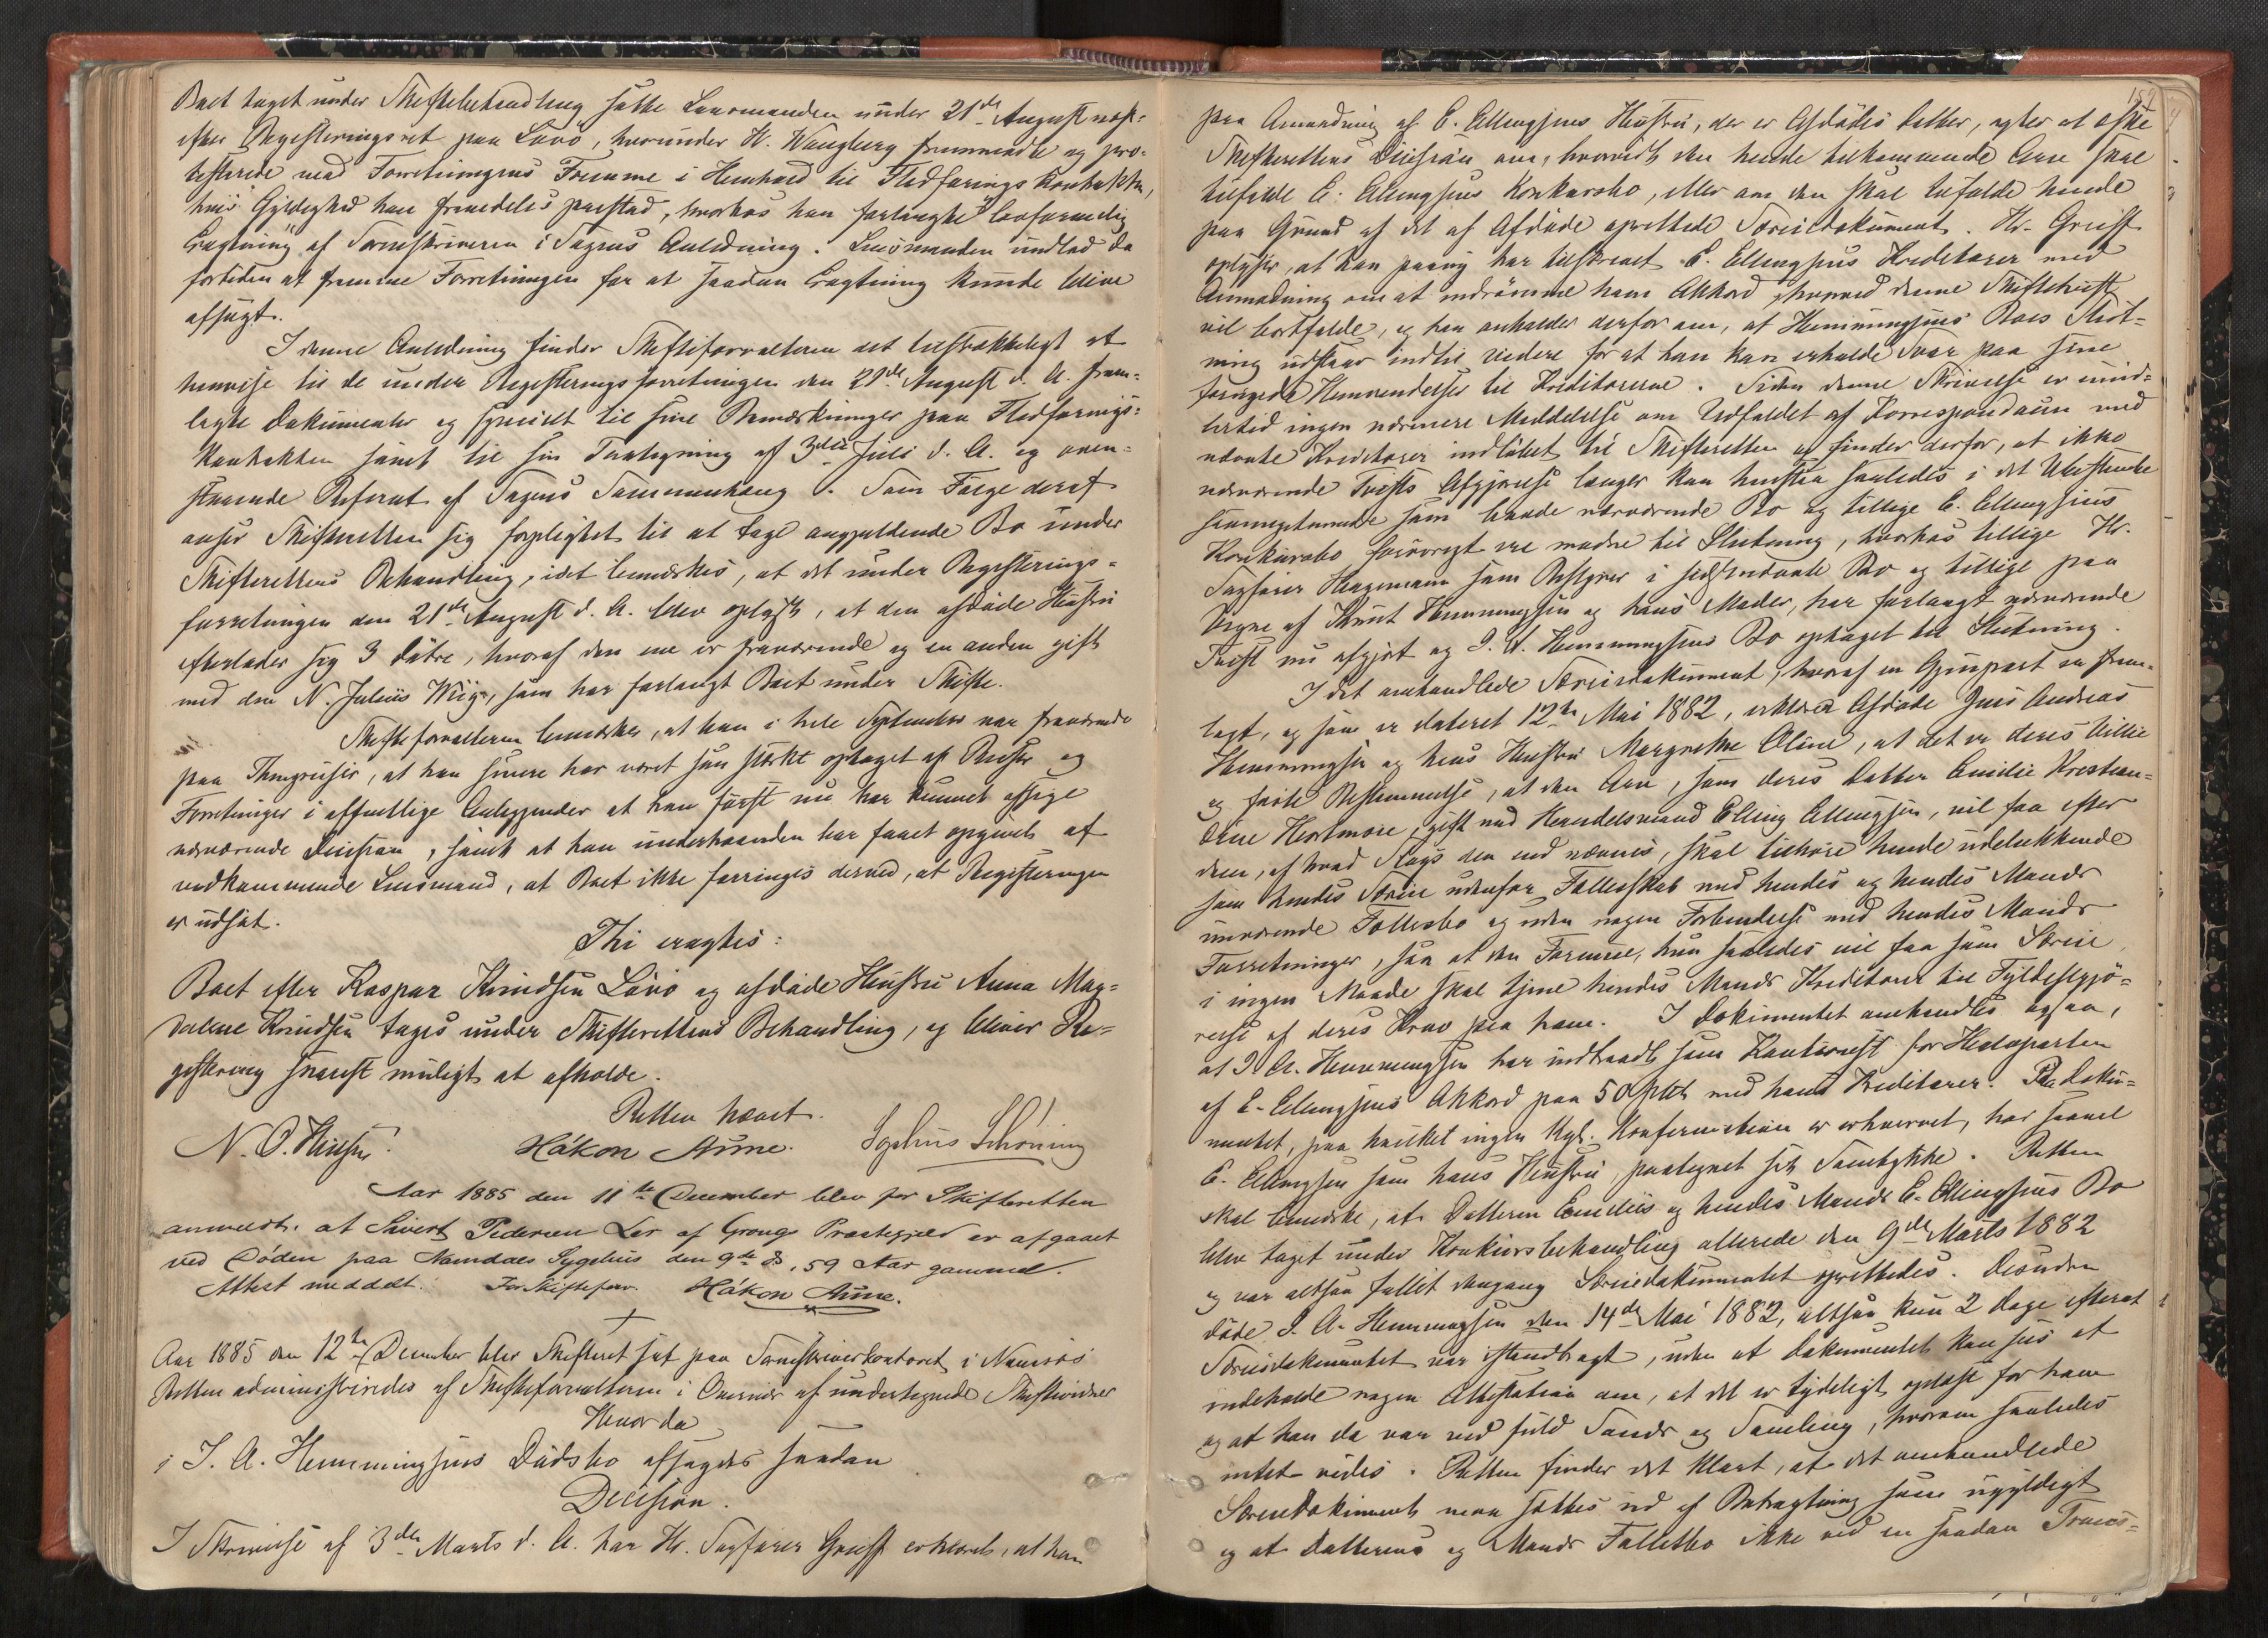 Boet taget under Skiftebehandling satte Lensmanden under 21de August næst-
efter Registreringsret paa Lövö, hvorunder H. Wangberg fremmødte og pro-
testerede mod Forretningens Fremme i Henhold til Flodføringskontrakten,
hvis Gyldighed han fremdeles paastod, hvorhos han forlangte lovformelig
Eragtning af Sorenskriveren i Sagens Anledning. Lensmanden undlod da
fortiden at fremme Forretningen for at saadan Eragtning kunde blive
afsagt.
I denne Anledning finder Skifteforvalteren det tilstrækkeligt at
henvise til de under Registreringsforretningen den 21de August d. A. frem-
lagte Dokumenter og specielt til sine Bemærkninger paa Flodførings-
kontrakten samt til sin Paategning af 3die Juli d. A. og oven-
staaende Referat af Sagens Sammenhæng. Som Følge deraf
anser Skifteretten sig forpligtet til at tage angjældende Bo under
Skifterettens Behandling, idet bemærkes, at det under Registrerings-
forretningen den 21de August d. A. blev oplyst, at den afdøde Hustru
efterlader sig 3 Døtre, hvoraf den ene er fraværende og en anden gift
med den N. Julius Wiig, som har forlangt Boet under Skifte.
Skifteforvalteren bemærker, at han i hele September var fraværende
paa Thingreiser, at han senere har været saa stærkt optaget af Reiser og
Forretninger i offentlige Anliggender at han først nu har kunnet afsige
nærværende Decision, samt at han underhaanden har faaet opgivet af
vedkommende Lensmand, at Boet ikke forringes derved, at Registreringen
er udsat.
Thi eragtes:
Boet efter Kaspar Knudsen Lövö og afdøde Hustru Anna Mag-
dalene Knudsen tages under Skifterettens Behandling, og bliver Re-
gistrering snarest muligt at afholde.
Retten hævet.
N. O. Håkon Aune. Sophus Schöning
Aar 1885 den 11te December blev for Skifteretten
anmeldt, at Sivert Pedersen Ler af Grong Præstegjeld er afgaaet
ved Døden paa Namdals Sygehus den 9de ds, 59 Aar gammel.
Attest meddelt. For Skifteforv. Håkon Aune.
Aar 1885 den 12te December blev Skifteret sat paa Sorenskriverkontoret i Namsos
Retten administreredes af Skifteforvalteren i Overvær af undertegnede Skiftevidner
Hvorda
i J. A. Hemmingsens Dödsbo afsagdes saadan
Decision.
I Skrivelse af 3die Marts d. A. har Hr. Sagfører Greiff erklæret, at han
152
paa Anmodning af E. Ellingsens Hustru, der er Afdødes Datter, agter at æske
Skifterettens Decision om, hvorvidt den hende tilkommende Arv skal
tilfalde E. Ellingsens Konkursbo, eller om den skal tilfalde hende
paa Grund af det af Afdøde oprettede Særeiedokument. Hr. Greiff
oplyser, at han paany har tilskrevet E. Ellingsens Kreditorer med
Anmodning om at indrømme ham Akkord, hvorved denne Skiftetvist
vil bortfalde, og han anholder derfor om, at Hemmingsens Boes Slut-
ning udstaar indtil videre for at han kan erholde Svar paa sine
fornyede Henvendelser til Kreditorerne. Siden denne Skrivelse er imid-
lertid ingen nærmere Meddelelse om Udfaldet af Korrespondancen med
nævnte Kreditorer indløbet til Skifteretten og finder derfor, at ikke
nærværende Tvists Afgjørelse længer kan henstaa saaledes i det Ubestemte
som baade nærværende Bo og tillige E. Ellingsens
Konkursbo forøvrigt er modne til Slutning, hvorhos tillige Hr.
Sagfører Hagemann som Bestyrer i sidstnævnte Bo og tillige paa
Vegne af Knut Hemmingsen og hans Moder, har forlangt nærværende
Tvist nu afgjort og J. A. Hemmingsens Bo optaget til Slutning.
I det omhandlede Særeiedokument, hvoraf en Gjenpart er frem-
lagt, og som er dateret 12te Mai 1882, erklærer Afdøde Jens Andreas
Hemmingsen og hans Hustru Margrethe Oline, at det er deres Villie
og faste Bestemmelse, at den Arv, som deres Datter Emilie Kristian-
dine Hartmoie, gift med Handelsmand Elling Ellingsen, vil faa efter
dem, af hvad Slags den end nævnes, skal tilhøre hende udelukkende
som hendes Særeie udenfor Fællesskab med hendes og hendes Mands
nuværende Fællesbo og uden nogen Forbindelse med hendes Mands
Forretninger, saa at den Formue, hun saaledes vil faa som Særeie
i ingen Maade skal tjene hendes Mands Kreditorer til Fyldestgjö-
relse af deres Krav paa ham. I Dokumentet omhandles ogsaa,
at J. A. Hemmingsen har indtraadt som Kautionist for Halvparten
af E. Ellingsens Akkord paa 50 pCt med hans Kreditorer. Paa Doku-
mentet, paa hvilket ingen Kgl. Konfirmation er erhvervet, har saavel
E. Ellingsen som hans Hustru paategnet sit Samtykke. Retten
skal bemærke, at Datteren Emilies og hendes Mands E. Ellingsens Bo
blev taget under Konkursbehandling allerede den 9de Marts 1882
og var altsaa fallit dengang Særeiedokumentet oprettedes. Desuden
døde J. A. Hemmingsen den 14de Mai 1882, altsaa kun 2 Dage efterat
Særeiedokumentet var istandbragt, uden at Dokumentet kan sees at
indeholde nogen Attestation om, at det er tydeligt oplæst for ham
og at han da var ved fuld Sands og Samling, hvorom saaledes
intet vides. Retten finder det klart, at det omhandlede
Særeiedokument maa sættes ud af Betragtning som ugyldigt
og at Datterens og Mands Fallitbo ikke ved en saadan